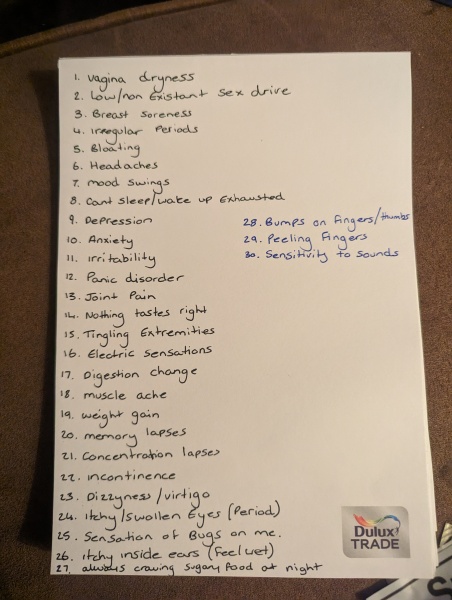 1. vagina dryness
2. Low/non Existant sex drive
3. Breast soreness
4. irregular Periods
5. Bloating
6. Headaches
7. mood swings
8. Cant sleep/wake up Exhausted
9. Depression
10. Anxiety
11. irritability
12. Panic disorder
13. Joint Pain
14. Nothing tastes right
15. Tingling Extremities
16. Electric sensations
17. Digestion change
18. muscle ache
19. weight gain
20. memory lapses
21. Concentration lapses
22. incontinence
23. Dizzyness/virtigo
24. Itchy/swollen Eyes (Period)
25. Sensation of Bugs on me.
26. itchy inside ears (Feel wet)
27. always craving sugary food at night
28. Bumps on fingers/thumbs
29. Peeling Fingers
30. Sensitivity to sounds
Dulux
TRADE